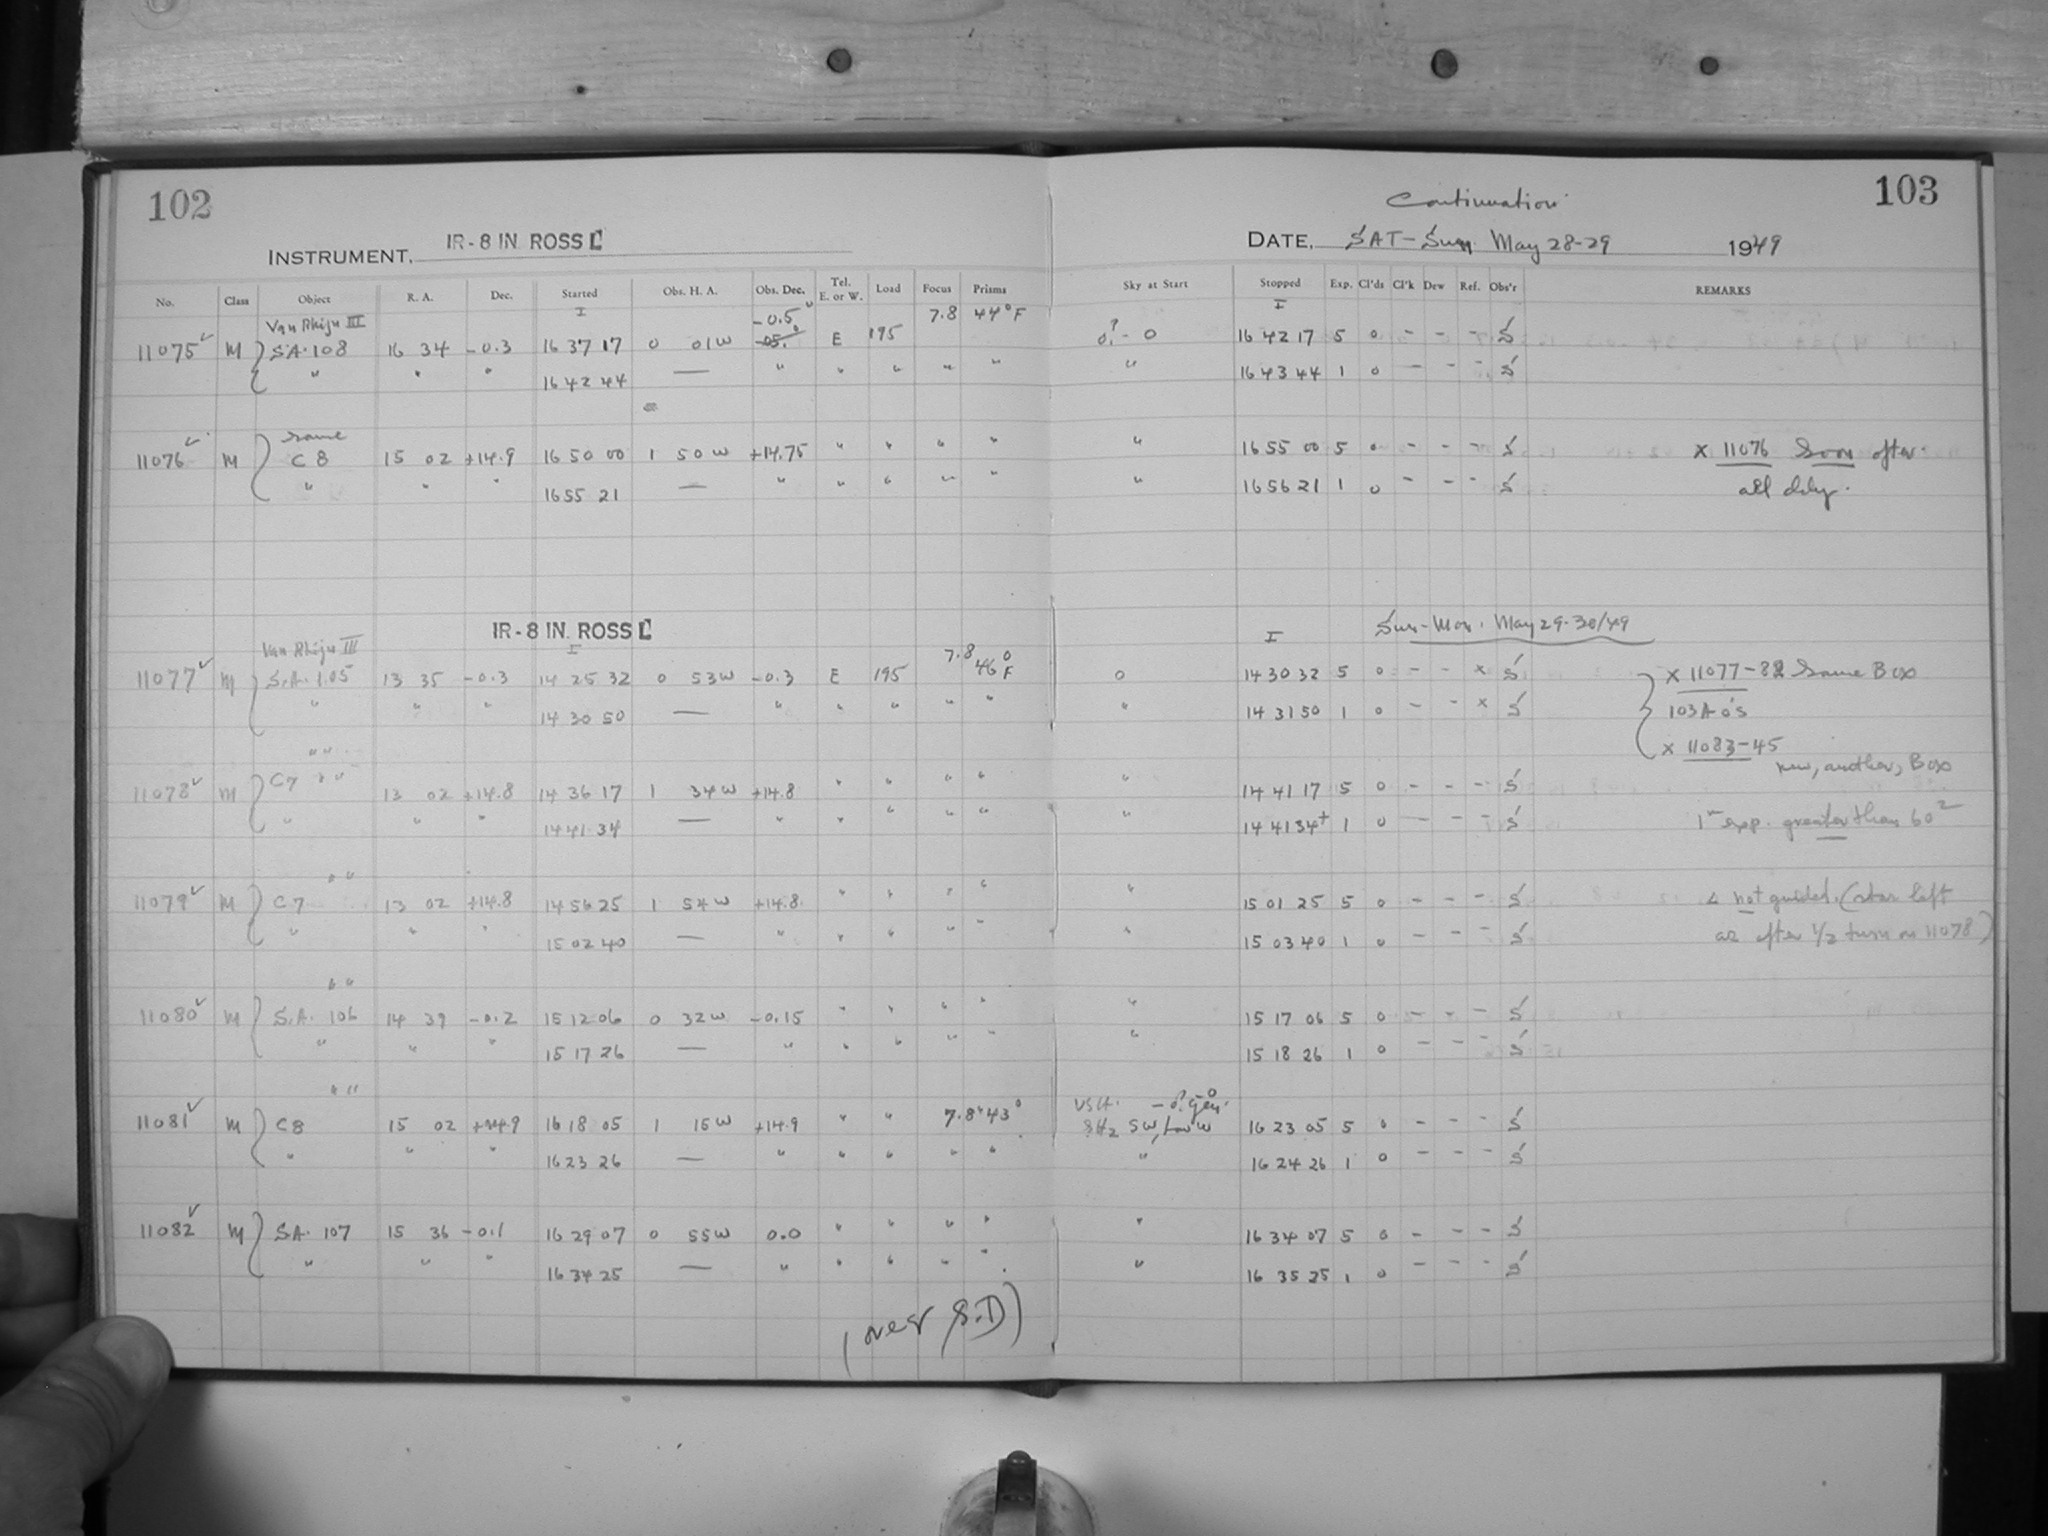 102
Continuation
103
INSTRUMENT, IR-8 IN. ROSS
DATE, SAT-Sun. May 28-29 1949
No. Class Object R. A. Dec. Started Obs. H. A. Obs. Dec. Tel. E. or W. Load Focus Prisms Sky at Start Stopped Exp. Cl'ds Cl'k Dew Ref. Obs'r REMARKS
Van Rhijn III I -0.5 7.8 44°F I
11075 ✓ M S.A. 108 16 34 -0.3 16 37 17 0 01 W -05.0 E 195 0.? - 0 16 42 17 5 0 - - - S
" " " 16 42 44 — " " " " " " 16 43 44 1 0 - - - S
same
11076 ✓ M C 8 15 02 +14.9 16 50 00 1 50 W +14.75 " " " " " 16 55 00 5 0 - - - S x 11076 Soon after
" " " 16 55 21 — " " " " " " 16 56 21 1 0 - - - S all
IR-8 IN. ROSS I Sun-Mon. May 29-30/49
Van Rhijn III I 7.8 46°F
11077 ✓ M S.A. 105 13 35 -0.3 14 25 32 0 53 W -0.3 E 195 0 14 30 32 5 0 - - x S x 11077-82 Same Box
" " " 14 30 50 — " " " " " " 14 31 50 1 0 - - x S 103A-O's
" " x 11083-45
new, another, Box
11078 ✓ M C 7 " " 13 02 +14.8 14 36 17 1 34 W +14.8 " " " " " 14 41 17 5 0 - - - S
" " " 14 41 34 — " " " " " " 14 41 34+ 1 0 - - - S 1m exp. greater than 60
" "
11079 ✓ M C 7 13 02 +14.8 14 56 25 1 54 W +14.8 " " " " " 15 01 25 5 0 - - - S not guided. (star left
" " " 15 02 40 — " " " " " " 15 03 40 1 0 - - - S as after 1/2 turn on 11078)
" "
11080 ✓ M S.A. 106 14 39 -0.2 15 12 06 0 32 W -0.15 " " " " " 15 17 06 5 0 - - - S
" " " 15 17 26 — " " " " " " 15 18 26 1 0 - - - S
" "
11081 ✓ M C 8 15 02 +14.9 16 18 05 1 15 W +14.9 " " 7.8 43° SW, Low W 16 23 05 5 0 - - - S
" " " 16 23 26 — " " " " " " 16 24 26 1 0 - - - S
11082 ✓ M S.A. 107 15 36 -0.1 16 29 07 0 55 W 0.0 " " " " " 16 34 07 5 0 - - - S
" " " 16 34 25 — " " " " " " 16 35 25 1 0 - - - S
(over S.D)